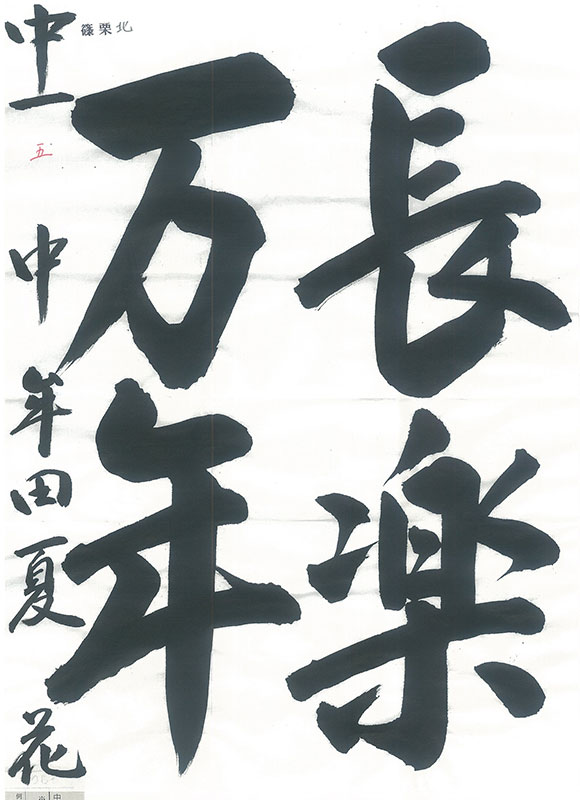 長楽
万年
篠栗北
中一 中牟田夏花
五